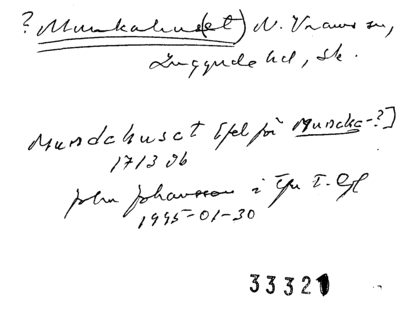 ? Munkahus(et) N. Vram sn,
Luggude hd, Sk.
Mundahuset Efel för Muncka-?]
1713 Jb
John Johansson i
1995-01-30
33321